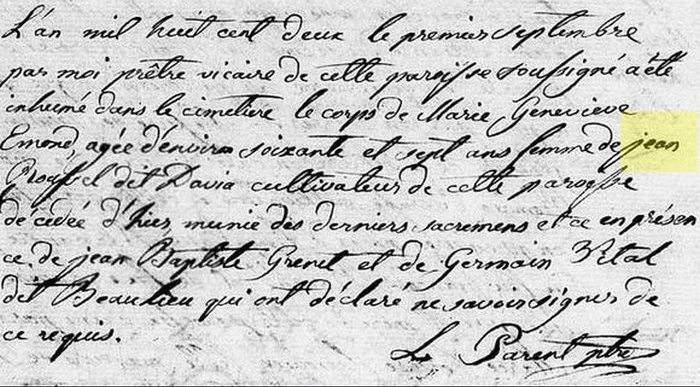 L'an mil huit cent deux le premier septembre
par moi prêtre vicaire de cette paroisse soussigné a été
inhumé dans le cimetiere le corps de Marie Genevieve
Emond, agée d'environ soixante et sept ans femme de jean
Roussel dit Davia cultivateur de cette paroisse
décédée d'hier, munie des derniers sacremens et ce en présen
ce de jean Baptiste Grenet et de Germain Vital
dit Beaulieu qui ont déclaré ne savoir signer de
ce requis.
L Parent ptre